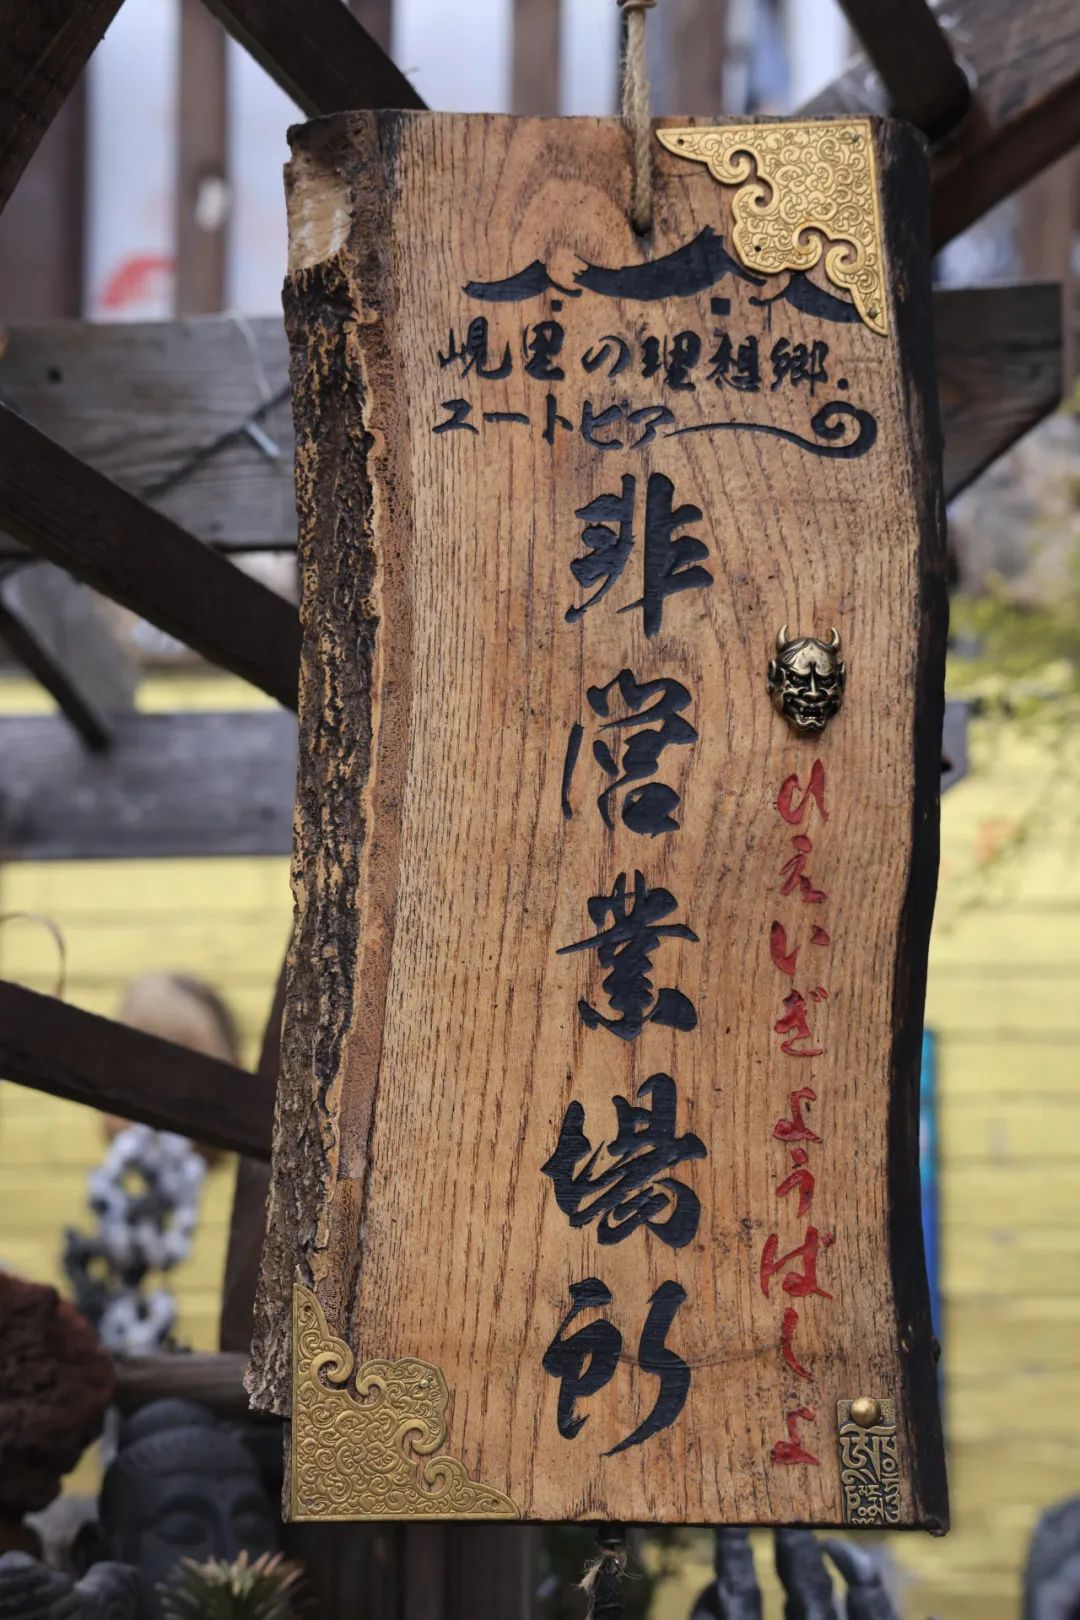 峴里の理想郷.
ユートピア
非営業場所
ひえいぎょうばしょ